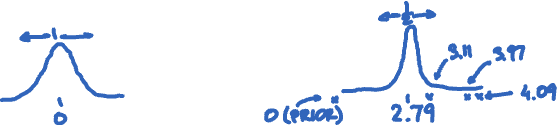 1
0
1/2
3.11
3.97
0 (PRIOR)
2.79
4.09